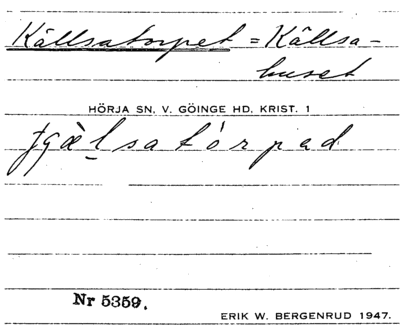 Källsatorpet = Källsa-
huset
HÖRJA SN, V. GÖINGE HD. KRIST. 1
tjgälsatórpad
Nr 5359.
ERIK W. BERGENRUD 1947.